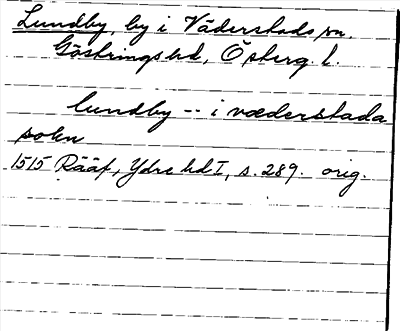 Lundby, by i Väderstads sn.
Göstrings hd, Österg. l.
lundby -- i væderstada
sokn
1515 Rääf, Ydre hd I, s. 289. orig.